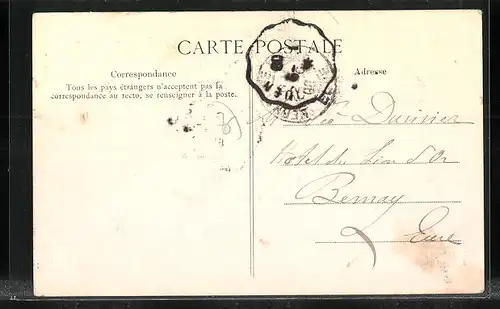 CARTE POSTALE
Correspondance
Tous les pays étrangers n'acceptent pas la
correspondance au recto, se renseigner à la poste.
Adresse
Hotel du Lion d'Or
Bernay
Eure